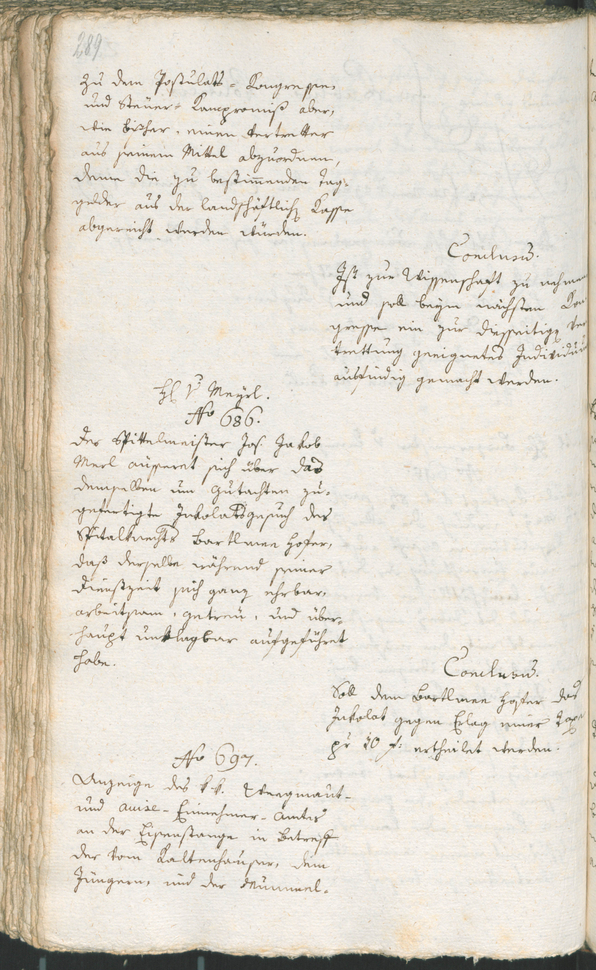 289
zu dem Postulats-Kongresse,
und Steuer-Kompromiß aber,
wie bisher, einen Vertretter
aus seinem Mittel abzuordnen,
denne die zu bestimmenden Tag-
gelder aus der landschäftlich Kasse
abgereicht werden würden.
Conclusū.
Ist zur Wissenschaft zu nehmen
und soll beym nächsten Kon
gresse ein zur diesseitigen Ver
trettung geeignetes Individuū
ausfündig gemacht werden.
H. v. Meyrl.
No 686.
Der Spittelmeister Jos. Jakob
Merl äußeret sich über das
demselben um Gutachten zu-
gefertigte Inkolatsgesuch des
Spitalknechts Bartlmee Hofer,
daß derselbe während seiner
Dienstzeit sich ganz ehrbar,
arbeitsam, getreu, und über-
haupt unklagbar aufgeführet
habe.
Conclusū.
Soll dem Bartlmee Hofer das
Inkolat gegen Erlag einer Taxe
pr 20 f: ertheilet werden.
No 697.
Anzeige des k.k. Weegmaut-
und accise-Einnehmer-Amtes
an der Eisenstange in Betreff
der vom Kaltenhauser, dem
Jüngern, und der Mummel-